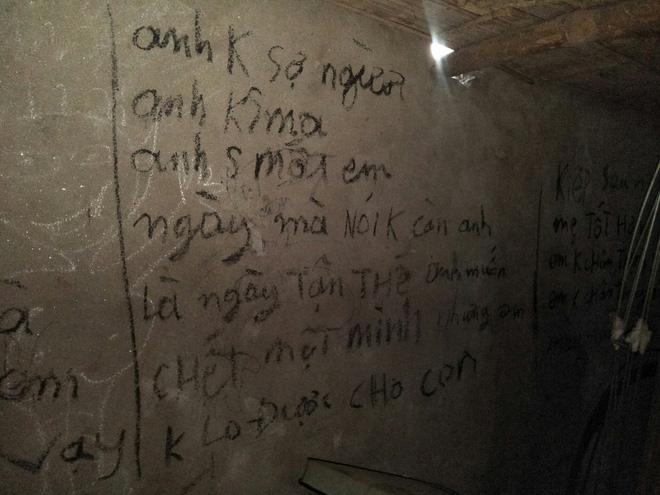 anh K sợ người
anh K S ma
anh S mất em
ngày mà NÓI K cần anh
là ngày TẬN THẾ anh muốn
CHẾT một MÌNH nhưng em
K LO ĐƯỢC CHO CON
à
em
vậy
Kiếp sau
mẹ TỐT
em K
em